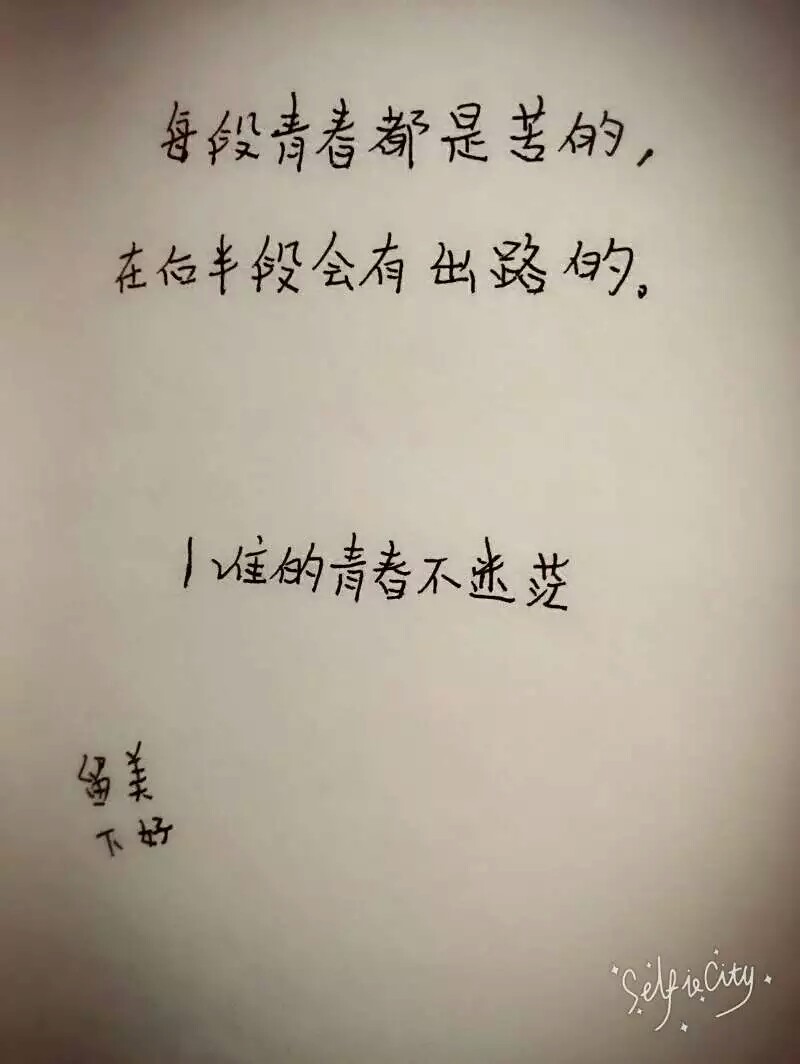 每段青春都是苦的，
在后半段会有出路的。
|谁的青春不迷茫
留美
下好
Selfie City